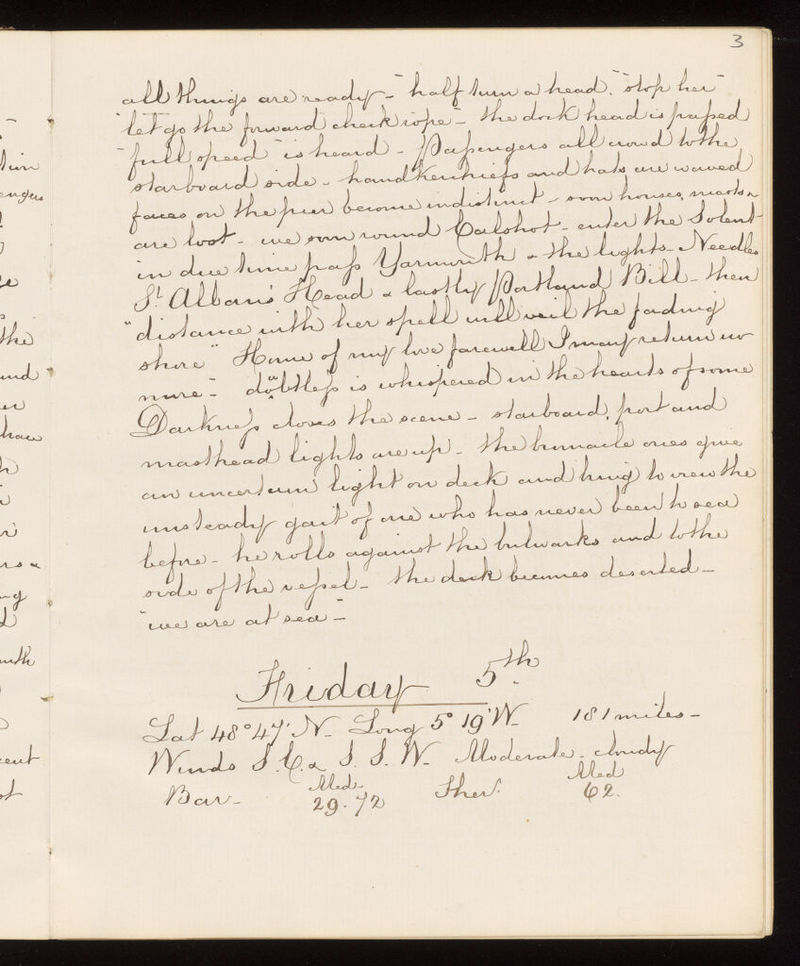 3
all things are ready - "half turn a head." "stop her"
"let go the forward check rope - the dock head is passed
"full speed" is heard - Passengers all crowd to the
starboard side - handkerchiefs and hats are waved
faces on the pier become indistinct - soon houses, masts &
are lost - we soon round Calshot - enter the Solent
in due time pass Yarmouth & the lights - Needles
St. Alban's Head & lastly Portland Bill - then
"distance with her spell will veil the fading
shore" Home of my love farewell I may return no
more - doubtless is whispered in the hearts of some
Darkness closes the scene - starboard, port and
masthead lights are up - the binnacle ones give
an uncertain light on deck and bring to view the
unsteady gait of one who has never been to sea
before - he rolls against the bulwarks and to the
side of the vessel - the deck becomes deserted -
"we are at sea -
Friday 5th.
Lat 48° 47' N - Long 5° 19' W - 181 miles -
Winds S. E. & S. S. W - Moderate - cloudy
Bar - Med - 29.72 Ther. Med 62.
tion
engers
the
and
have
ng
with